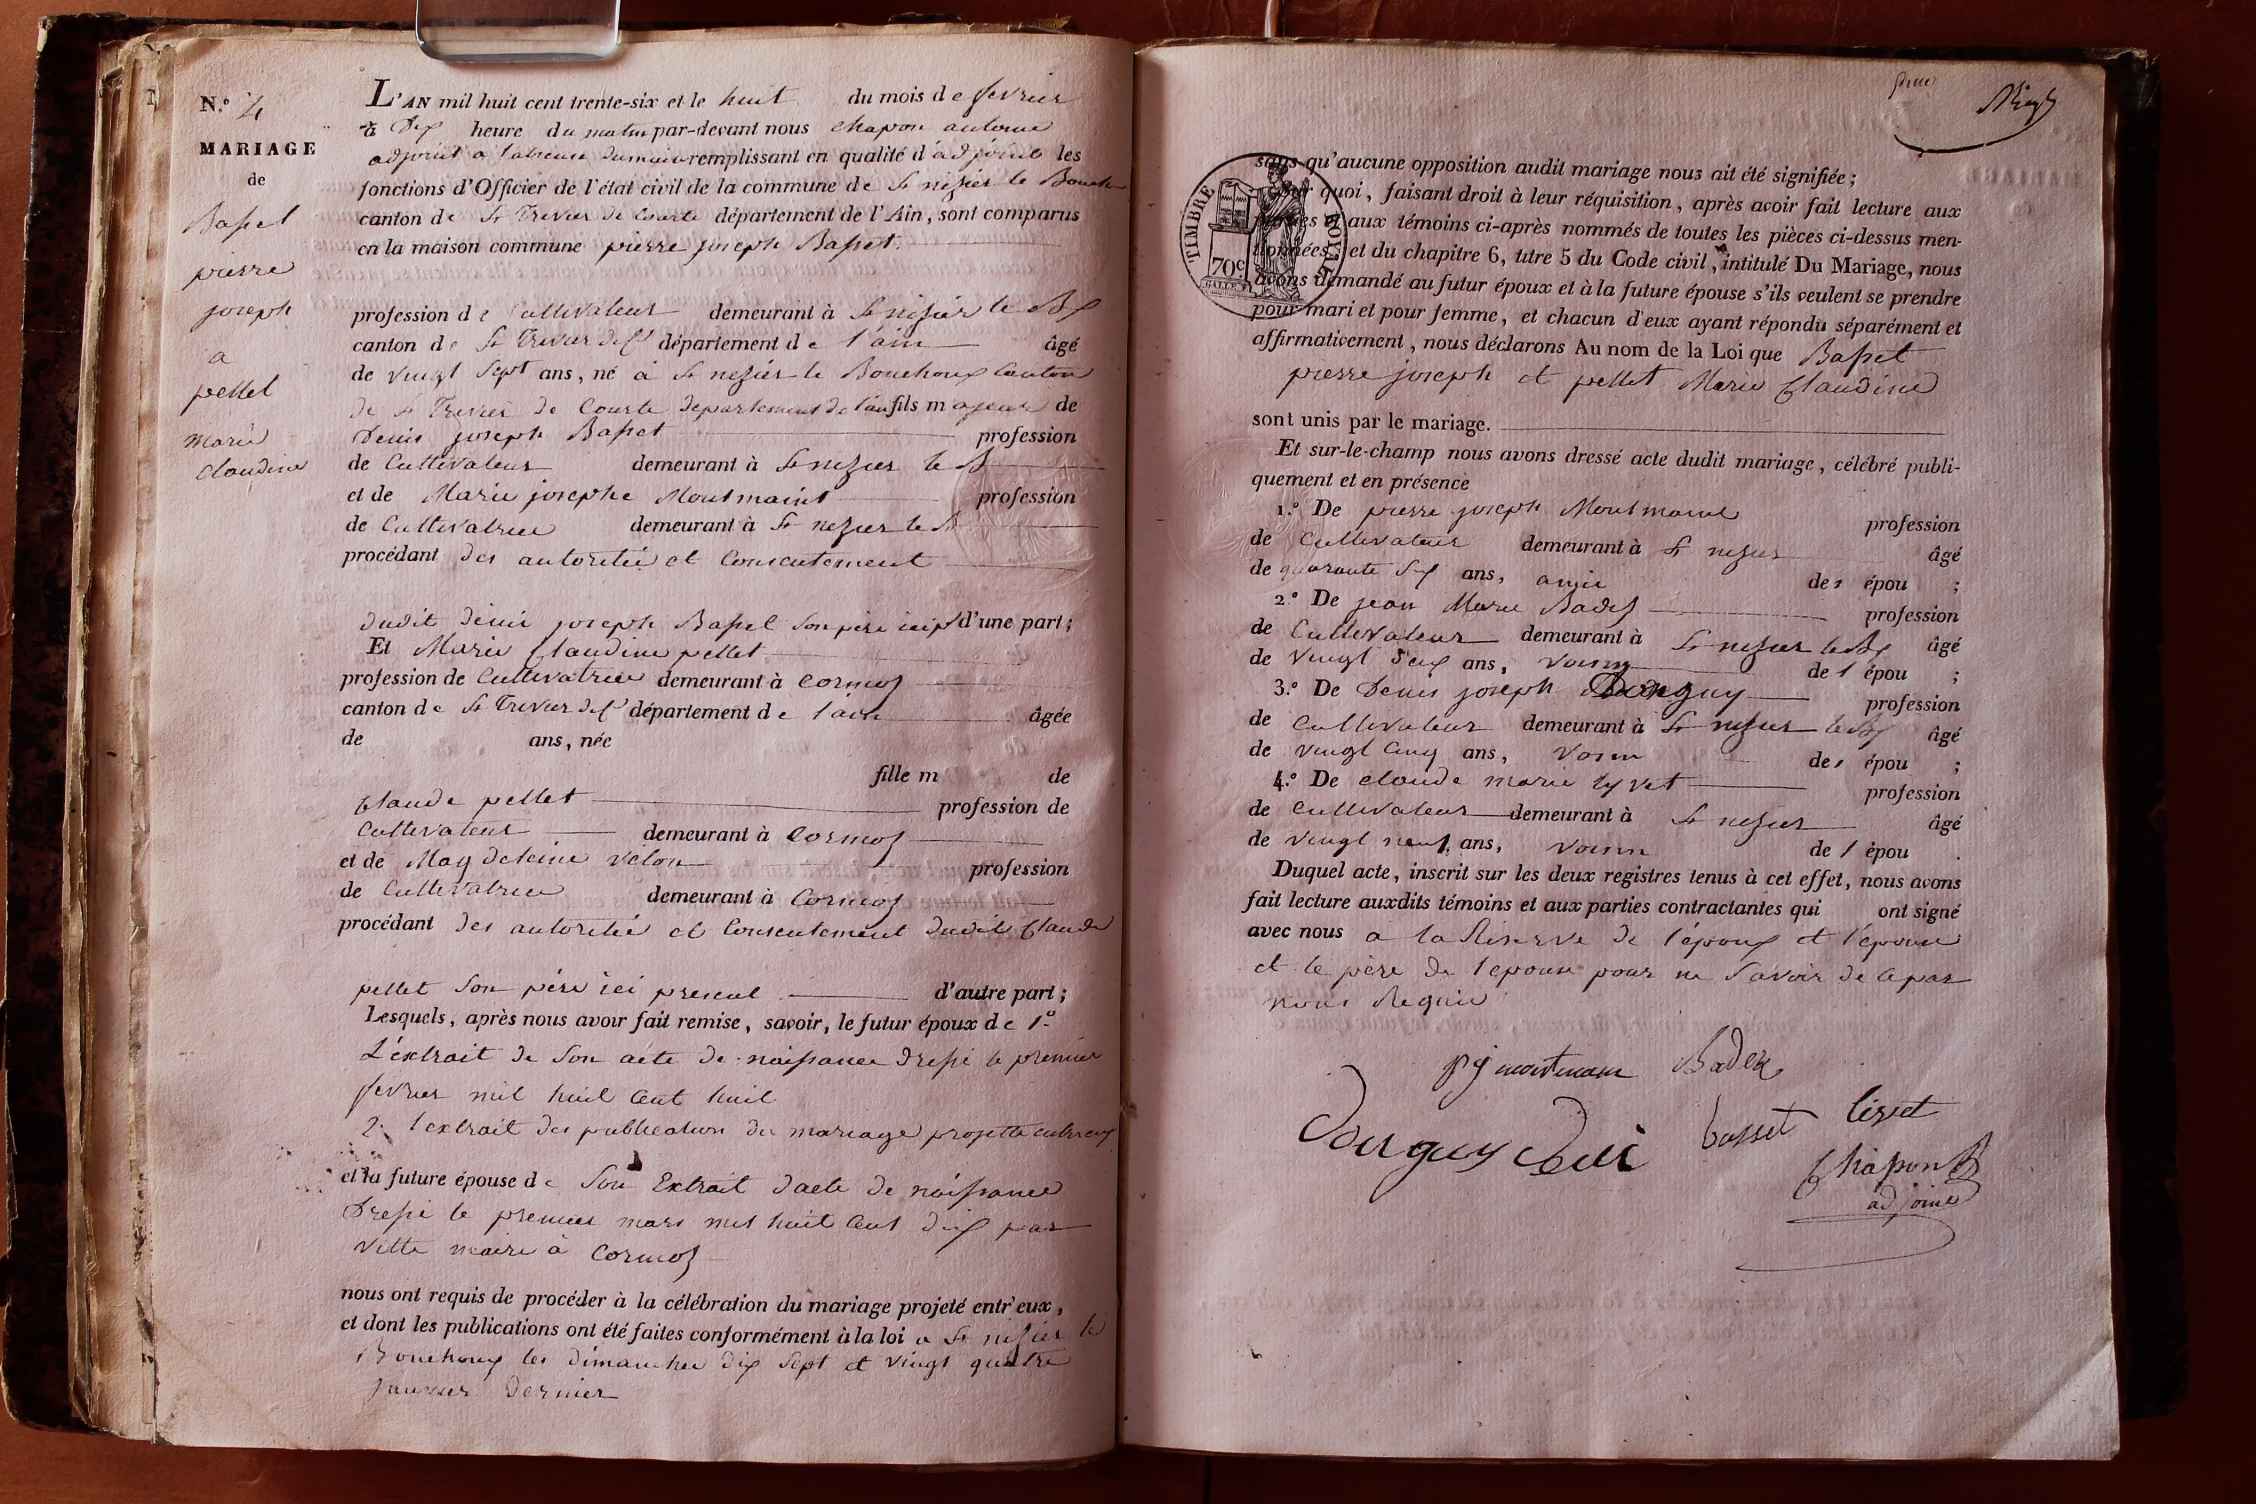 N.º 4
MARIAGE
de
Basset
pierre
joseph
a
pellet
marie
claudine
L'AN mil huit cent trente-six et le huit du mois de fevrier
à Dix heure du matin par-devant nous chapon antoine
adjoint a l'absence du maire remplissant en qualité d'adjoint les
fonctions d'Officier de l'état civil de la commune de St nizier le Bouchoux
canton de St Trivier de Courte département de l'Ain, sont comparus
en la maison commune pierre joseph Basset
profession de Cultivateur demeurant à St nizier le Bx
canton de St Trivier de Ct département de l'ain âgé
de vingt sept ans, né à St nizier le Bouchoux Canton
de St Trivier de Courte departement de l'ain fils majeur de
Denis joseph Basset profession
de Cultivateur demeurant à St nizier le B
et de Marie josephe Montmaint profession
de Cultivatrice demeurant à St nizier le B
procédant des autorité et Consentement
dudit denis joseph Basset son père ici pt d'une part;
Et Marie Claudine pellet
profession de Cultivatrice demeurant à Cormoz
canton de St Trivier de Ct département de l'ain âgée
de ans, née
fille m de
Claude pellet profession de
Cultivateur demeurant à Cormoz
et de Magdeleine velon profession
de Cultivatrice demeurant à Cormoz
procédant des autorité et Consentement dudit Claude
pellet son père ici present d'autre part;
Lesquels, après nous avoir fait remise, savoir, le futur époux de 1º
L'extrait de son acte de naissance dressé le premier
fevrier mil huit cent huit
2º l'extrait des publication du mariage projetté entr'eux
et la future épouse de Son Extrait d'acte de naissance
Dressé le premier mars mil huit cent dix par
vitte maire à Cormoz
nous ont requis de procéder à la célébration du mariage projeté entr'eux,
et dont les publications ont été faites conformément à la loi a St nizier le
Bouchoux les dimanches dix sept et vingt quatre
janvier dernier
TIMBRE ROYAL
70c.
sans qu'aucune opposition audit mariage nous ait été signifiée;
Sur quoi, faisant droit à leur réquisition, après avoir fait lecture aux
parties et aux témoins ci-après nommés de toutes les pièces ci-dessus men-
tionnées, et du chapitre 6, titre 5 du Code civil, intitulé Du Mariage, nous
avons demandé au futur époux et à la future épouse s'ils veulent se prendre
pour mari et pour femme, et chacun d'eux ayant répondu séparément et
affirmativement, nous déclarons Au nom de la Loi que Basset
pierre joseph et pellet Marie Claudine
sont unis par le mariage.
Et sur-le-champ nous avons dressé acte dudit mariage, célébré publi-
quement et en présence
1.º De pierre joseph Montmaint profession
de Cultivateur demeurant à St nizier âgé
de quarante six ans, amie des épou ;
2.º De jean Marie Badez profession
de Cultivateur demeurant à St nizier le Bx âgé
de vingt deux ans, voisin de l épou ;
3.º De Denis joseph Donguy profession
de Cultivateur demeurant à St nizier le Bx âgé
de vingt cinq ans, voisin des épou ;
4.º De claude marie lyvet profession
de Cultivateur demeurant à St nizier âgé
de vingt neuf ans, voisin de l épou .
Duquel acte, inscrit sur les deux registres tenus à cet effet, nous avons
fait lecture auxdits témoins et aux parties contractantes qui ont signé
avec nous a la Reserve de l'époux et l'epouse
et le père de l'epouse pour ne savoir de ce par
nous Requis
pj montmain Badez
Donguy basset livet
Chapon
adjoint